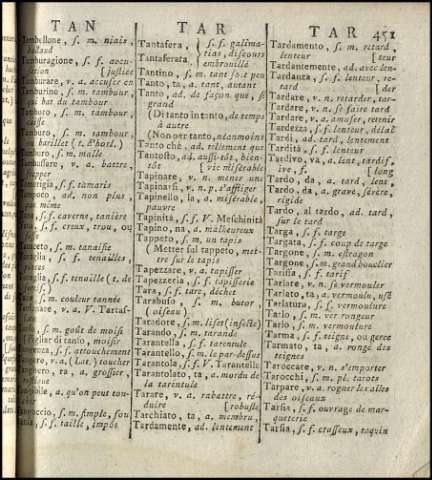 TAN
TAR
TAR 451
Tambellone, s. m. niais,
s. f. accu-
sation [justice
v. a. accuser en
Tamburino, s. m. tambour,
qui bat du tambour
s. m. tambour,
s. m. tambour,
ou barillet (t. d'horl.)
s. m. malle
v. a. battre,
s. f. tamaris
ad. non plus,
de même
Tana, s. f. caverne, tanière
s. f. creux, trou, ou
s. m. tanaisie
s. f. tenailles,
s. f. tenaille (t. de
s. m. couleur tannée
v. a. V. Tartas-
s. m. goût de moisi
(Pigliar di tanfo, moisir
s. f. attouchement
v. a. (Lat.) toucher
ta, a. grossier,
a. qu'on peut tou-
s. m. simple, fou
s. f. taille, impôt
Tantafera, } s. f. galima-
Tantaferata, } tias, discours
embrouillé
Tantino, s. m. tant soit peu
Tanto, ta, a. tant, autant
Tanto, ad. de façon que, si
grand
(Di tanto in tanto, de temps
à autre
(Non per tanto, néanmoins
Tanto chè, ad. tellement que
Tantosto, ad. aussi-tôt, bien-
tôt [vie misérable
Tapinare, v. n. mener une
Tapinarsi, v. n. p. s'affliger
Tapinello, la, a. misérable,
pauvre
Tapinità, s. f. V. Meschinità
Tapino, na, a. malheureux
Tappeto, s. m. un tapis
(Metter sul tappeto, met-
tre sur le tapis
Tapezzare, v. a. tapisser
Tapezzeria, s. f. tapisserie
Tara, s. f. tare, déchet
Tarabuso, s. m. butor,
(oiseau)
Taradore, s. m. liset (insecte)
Tarando, s. m. tarande
Tarantella, s. f. tarentule
Tarantello, s. m. le par-dessus
Tarantola, s. f. V. Tarantella
Tarantolato, ta, a. mordu de
la tarentule
Tarare, v. a. rabattre, ré-
duire [robuste,
Tarchiato, ta, a. membru,
Tardamente, ad. lentement
Tardamento, s. m. retard,
lenteur [teur
Tardantemente, ad. avec len-
Tardanza, s. f. lenteur, re-
tard [der
Tardare, v. n. retarder, tar-
Tardare, v. n. se faire tard
Tardare, v. a. amuser, retenir
Tardezza, s. f. lenteur, délai
Tardi, ad. tard, lentement
Tardità, s. f. lenteur
Tardivo, va, a. lent, tardif,
ive, f. [long
Tardo, da, a. tard, lent,
Tardo, da, a. grave, sévère,
rigide
Tardo, al tardo, ad. tard,
sur le tard
Targa, s. f. targe
Targata, s. f. coup de targe
Targone, s. m. estragon
Targone, s. m. grand bouclier
Tariffa, s. f. tarif
Tarlare, v. n. se vermouler
Tarlato, ta, a. vermoulu, usé
Tarlatura, s. f. vermoulure
Tarlo, s. m. ver rongeur
Tarlo, s. m. vermoulure
Tarma, s. f. teigne, ou gerce
Tarmato, ta, a. rongé des
teignes
Taroccare, v. n. s'emporter
Tarocchi, s. m. pl. tarots
Tarpare, v. a. rogner les ailes
des oiseaux
Tarsia, s. f. ouvrage de mar-
queterie
s. f. crasseux, taquin